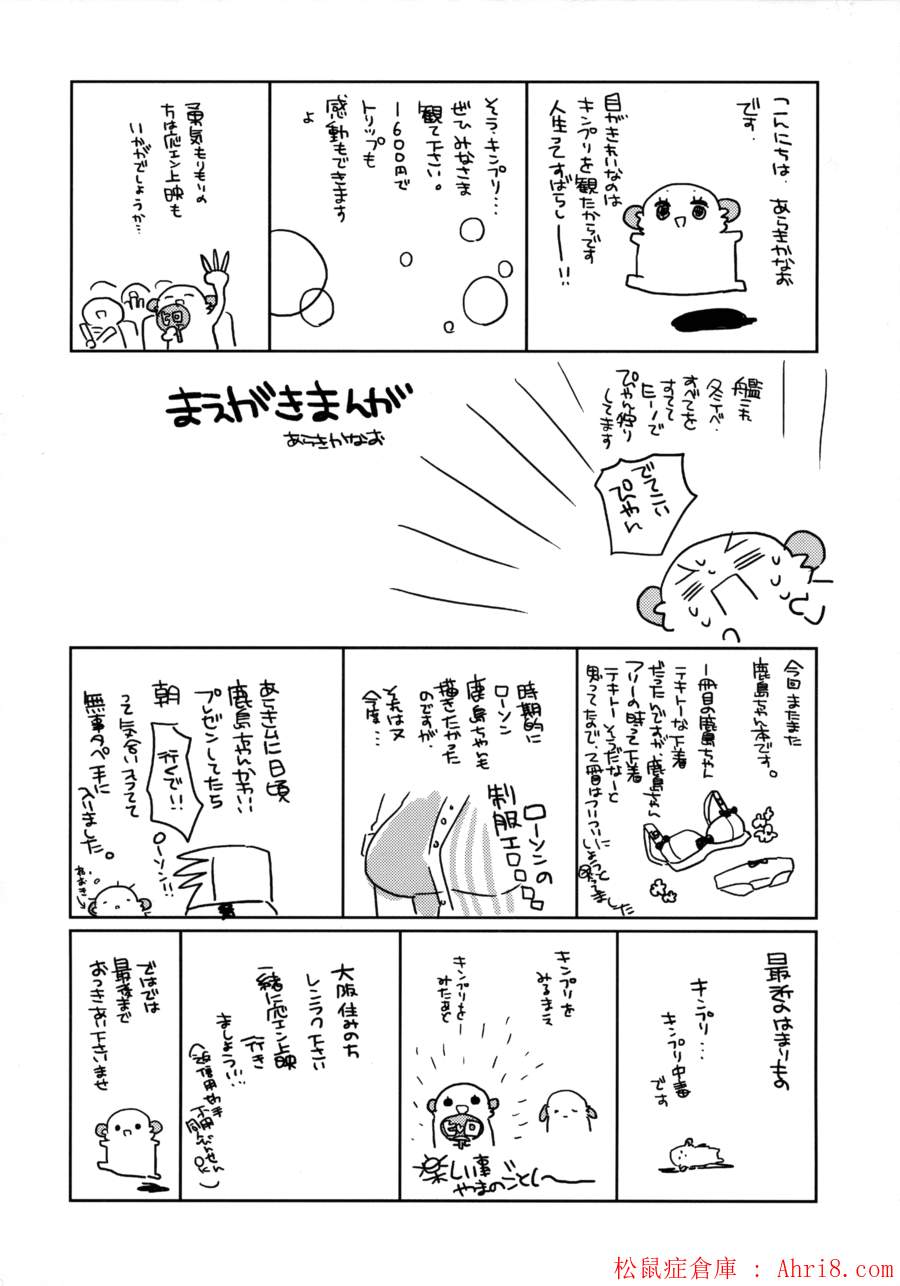 こんにちは、あらきかなお
です。
目がきれいなのは
キンプリを観たからです
人生ってすばらしー!!
そう、キンプリ…
ぜひみなさま
観て下さい。
1600円で
トリップも
感動もできます
よ
勇気もりもりの
方は応エン上映も
いかがでしょうか…
まえがきまんが
あらきかなお
艦これ
冬イベ、
すべてを
すてて
ヒーノで
ぴゃん狩り
してます
でてこい
ぴゃん
今回またまた
鹿島ちゃん本です。
一冊目の鹿島ちゃん
テキトーな下着
だったんですが、鹿島ちゃん
フリーの時って下着
テキトーそうだなーと
思ってたので、
時期的に
ローソン
鹿島ちゃんも
描きたかった
のですが、
それは又
今度…
ローソンの
制服エロロロロ
あらきムに日頃
鹿島ちゃんかわいい
プレゼンしてたら
朝
行くで!!
ローソン!!
って気合い入ってて
無事タペ手に
入りました。
最近のはまりもの
キンプリ…
キンプリ中毒
です
キンプリを
みるまえ
キンプリをー
みたあと
ヒロ
楽しい事
やまのごとしー
大阪住みの方
レンラク下さい
一緒に応エン上映
行き
ましょう…
ではでは
最後まで
おつきあい下さいませ
松鼠症倉庫 : Ahri8.com